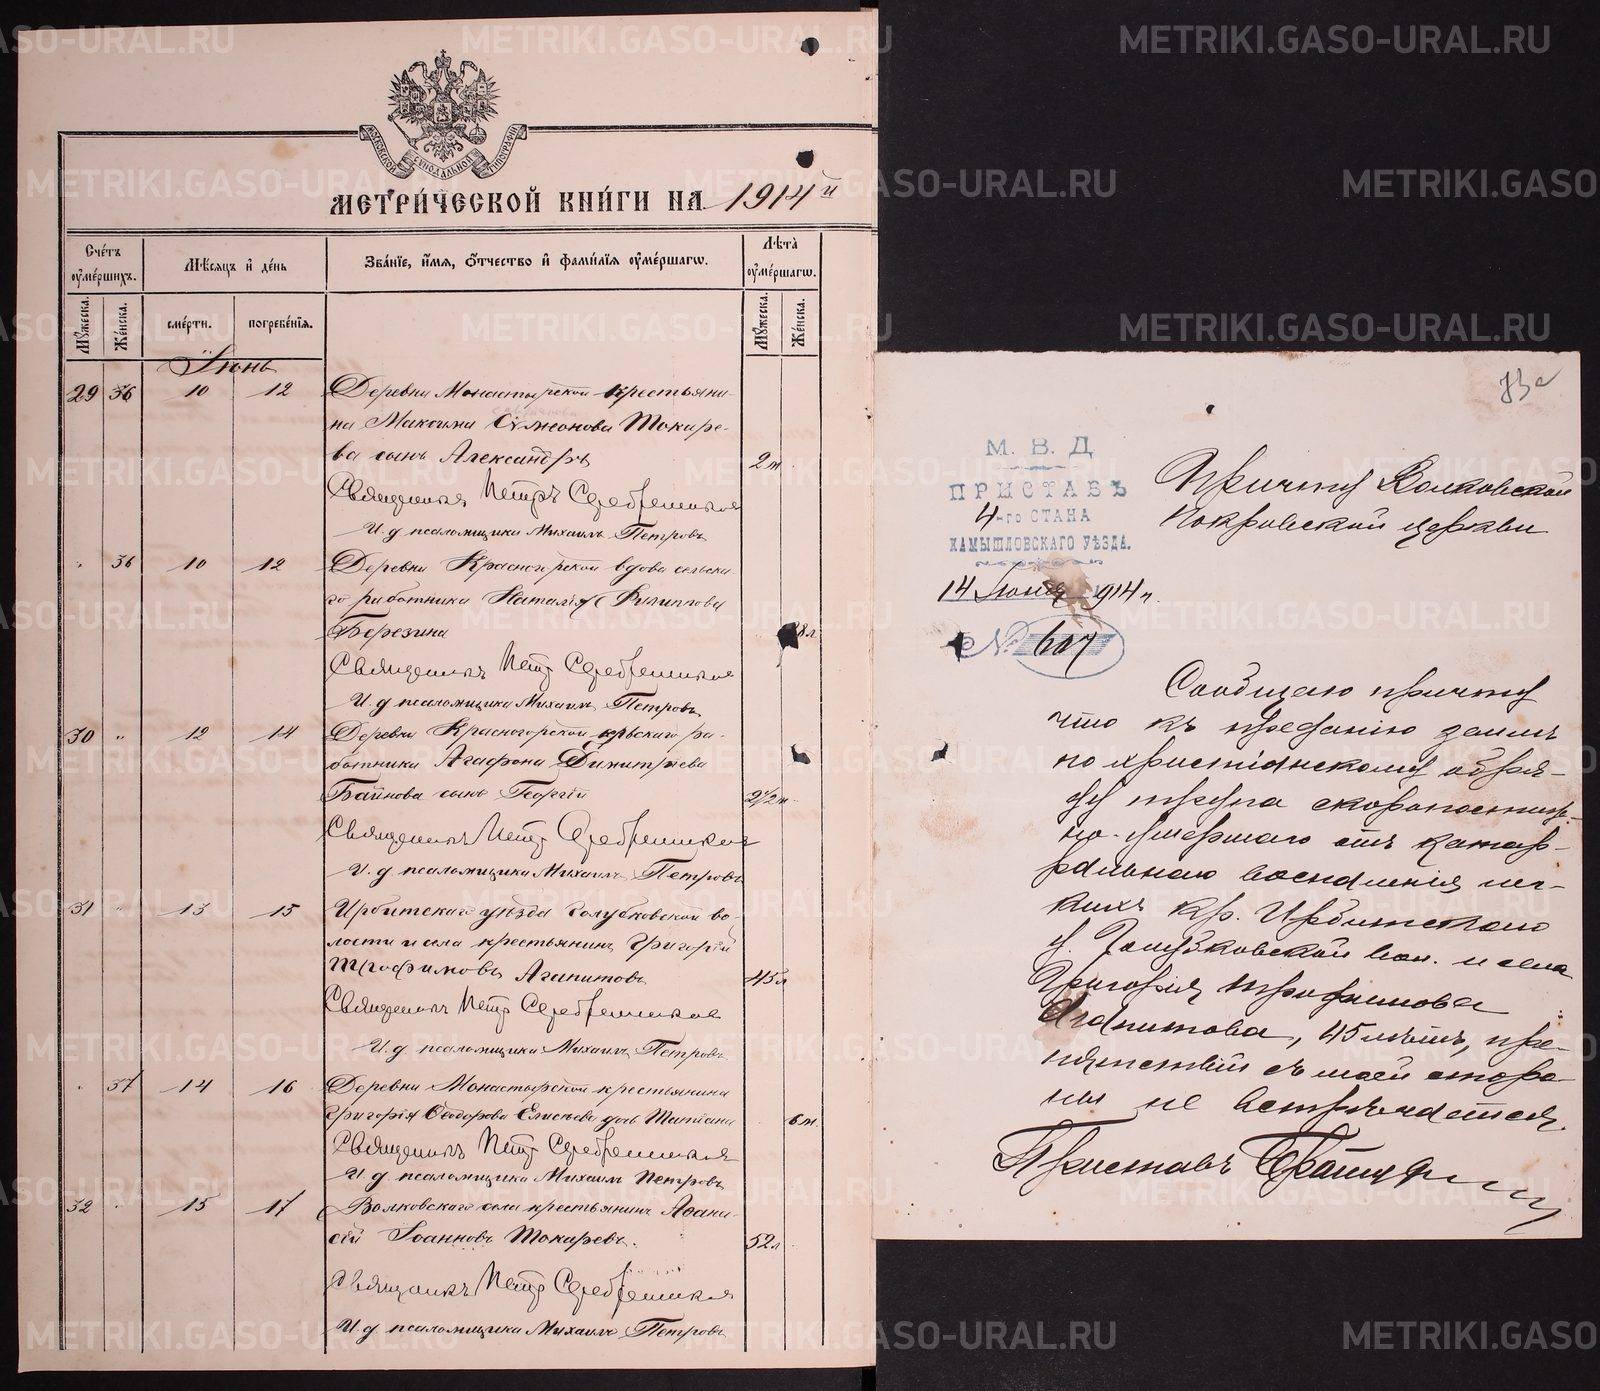 МОСКОВСКОЙ СѴНОДАЛЬНОЙ ТИПОГРАФИИ
МЕТРИ́ЧЕСКОЙ КНИ́ГИ НА 1914 й
Сче́тъ ᲂу҆ме́ршихъ.
Мѣ́сяцъ и҆ де́нь
Зва́нїе, и҆́мѧ, ѻ҆́тчество и҆ фами́лїѧ ᲂу҆ме́ршагѡ.
Лѣта̀ ᲂу҆ме́ршагѡ.
Мꙋ́жеска.
Же́нска.
сме́рти.
погребе́нїѧ.
Мꙋ́жеска.
Же́нска.
Іюнь
29 36 10 12 Деревни Монастырской крестьяни-
на Максима Сѵмеонова Токаре-
ва сынъ Александръ 2 м
Священникъ Петръ Серебренников
И. д псаломщика Михаилъ Петровъ
" 36 10 12 Деревни Красногорской вдова сельска-
го работника Наталія Филиппова
Березина 8 л
Священникъ Петр Серебренников
И. д псаломщика Михаилъ Петровъ
30 " 12 14 Деревни Красногорской сельскаго ра-
ботника Агафона Димитріева
Баинова сынъ Георгій 2 1/2 м
Священникъ Петр Серебренников
И. д псаломщика Михаилъ Петровъ
31 " 13 15 Ирбитскаго уѣзда Голубковской во-
лости и села крестьянинъ Григорій
Трофимовъ Агапитовъ 45 л
Священникъ Петр Серебренников
И. д псаломщика Михаилъ Петровъ
" 37 14 16 Деревни Монастырской крестьянина
Григорія Ѳеодорова Елисѣева дочь Татіана 6 м
Священникъ Петр Серебренников
И. д псаломщика Михаилъ Петровъ
32 " 15 17 Волковскаго села крестьянинъ Аѳана-
сій Іоанновъ Токаревъ. 52 л
Священникъ Петр Серебренников
И. д псаломщика Михаилъ Петровъ
М. В. Д
ПРИСТАВЪ
4-го СТАНА
КАМЫШЛОВСКАГО УѢЗДА.
14 Іюня 1914 г.
№ 607
Причту Волковской
Покровской церкви
Сообщаю причту
что къ преданію землѣ
по христіанскому обря-
ду трупа скоропостиж-
но-умершаго отъ катар-
ральнаго воспаленія лег-
кихъ кр. Ирбитскаго
у. Голубковской вол. и села
Григорія Трофимова
Агапитова, 45 лѣтъ, пре-
пятствій съ моей сторо-
ны не встрѣчается.
Приставъ
METRIKI.GASO-URAL.RU